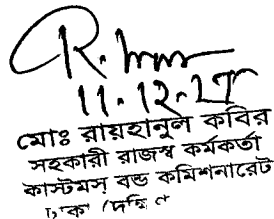 11.12.25
মোঃ রায়হানুল কবির
সহকারী রাজস্ব কর্মকর্তা
কাস্টমস্ বন্ড কমিশনারেট